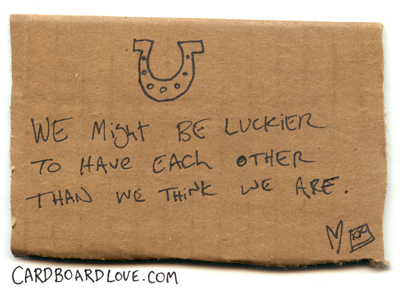 WE Might BE LUCKiER
TO HAVE EACh OTHER
THAN WE THiNK WE ARE.
CARDBOARDLOVE.COM